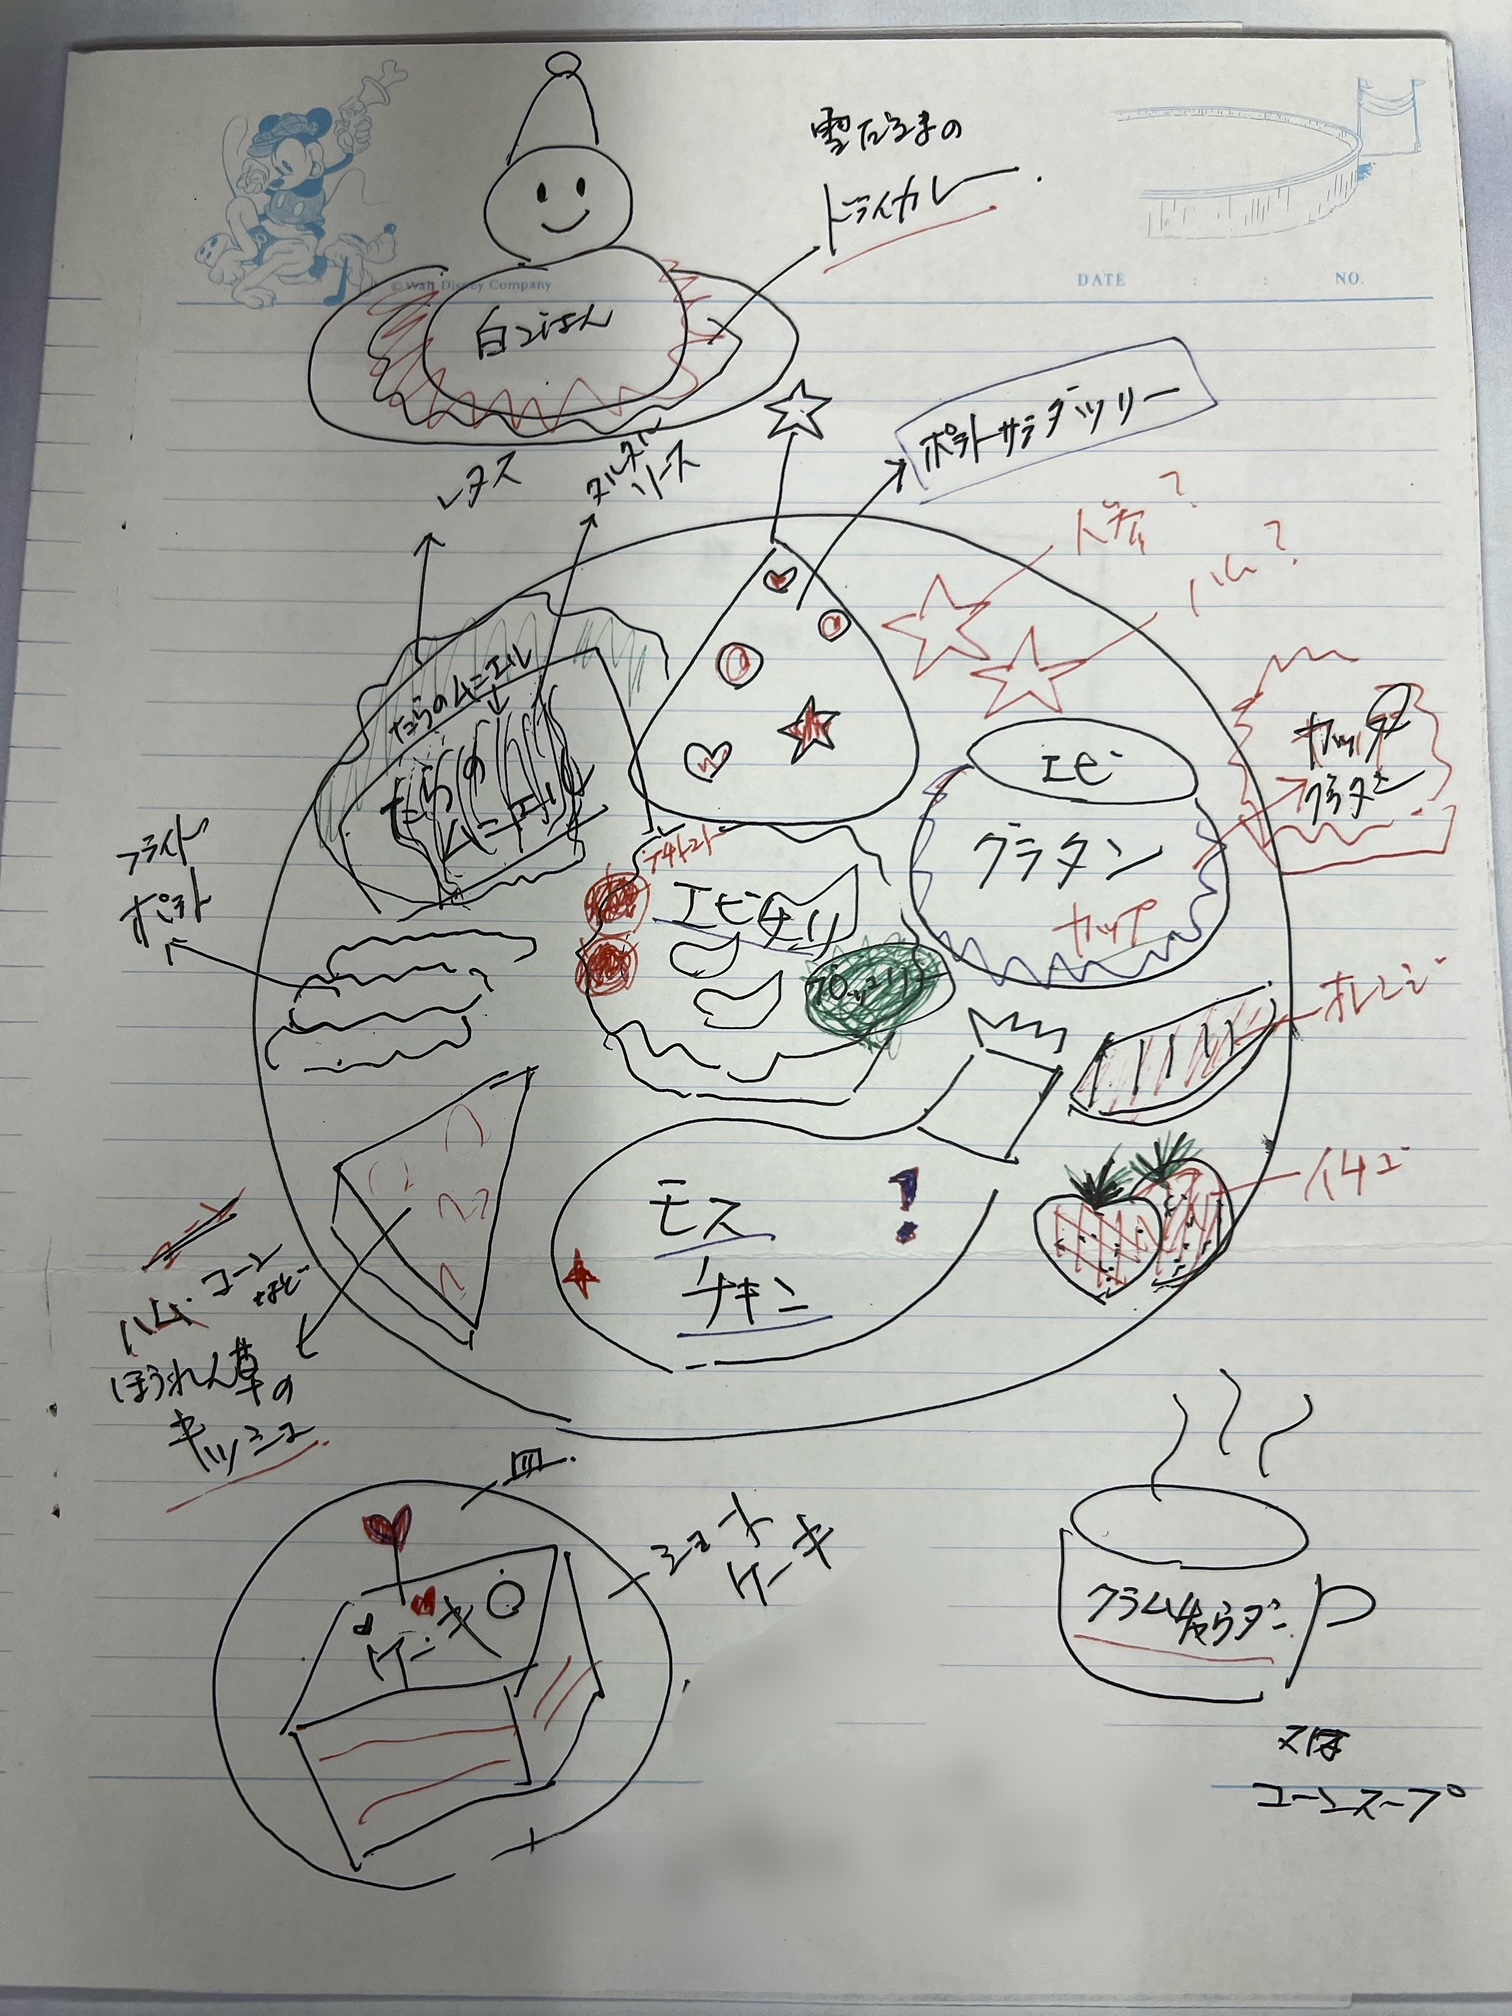 雪だるまの
ドライカレー.
© Walt Disney Company
DATE : : NO.
白ごはん
ポテトサラダツリー
レタス
タルタル
ソース
人参?
ハム?
たらのムニエル
たらの
ムニエル
エビ
グラタン
カップ
カップ
グラタン
フライド
ポテト
プチトマト
エビチリ
ブロッコリー
オレンジ
イチゴ
モス
チキン
!
ハム・コーン
など
ほうれん草の
キッシュ
皿.
ショート
ケーキ
ケーキ
クラムチャウダー
又は
コーンスープ